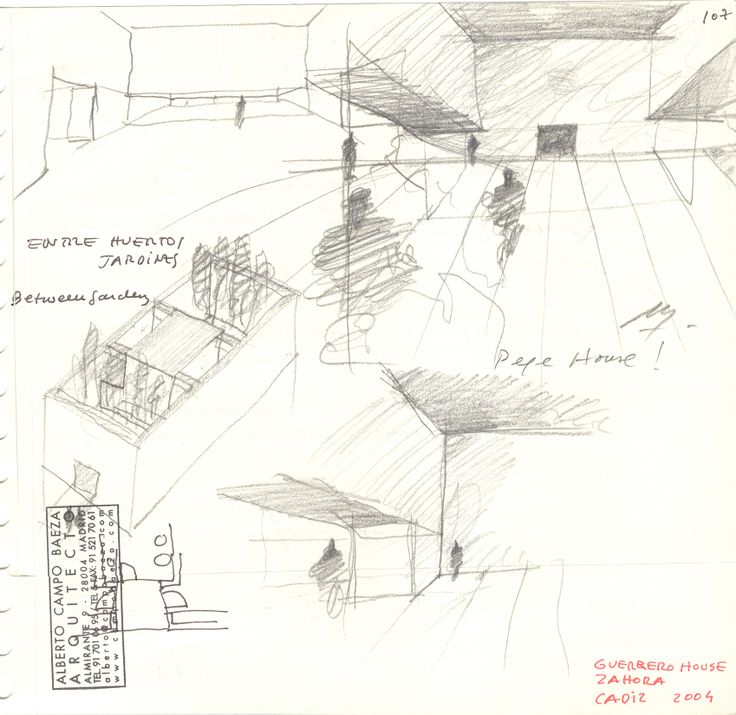 107
ENTRE HUERTOS
JARDINES
Between Gardens
Pepe House !
ALBERTO CAMPO BAEZA
ARQUITECTO
ALMIRANTE 9 - 28004 MADRID
TEL.91 701 06 95 / TEL & FAX: 91 521 70 61
alberto@campobaeza.com
www.campobaeza.com
GUERRERO HOUSE
ZAHORA
CADIZ 2004